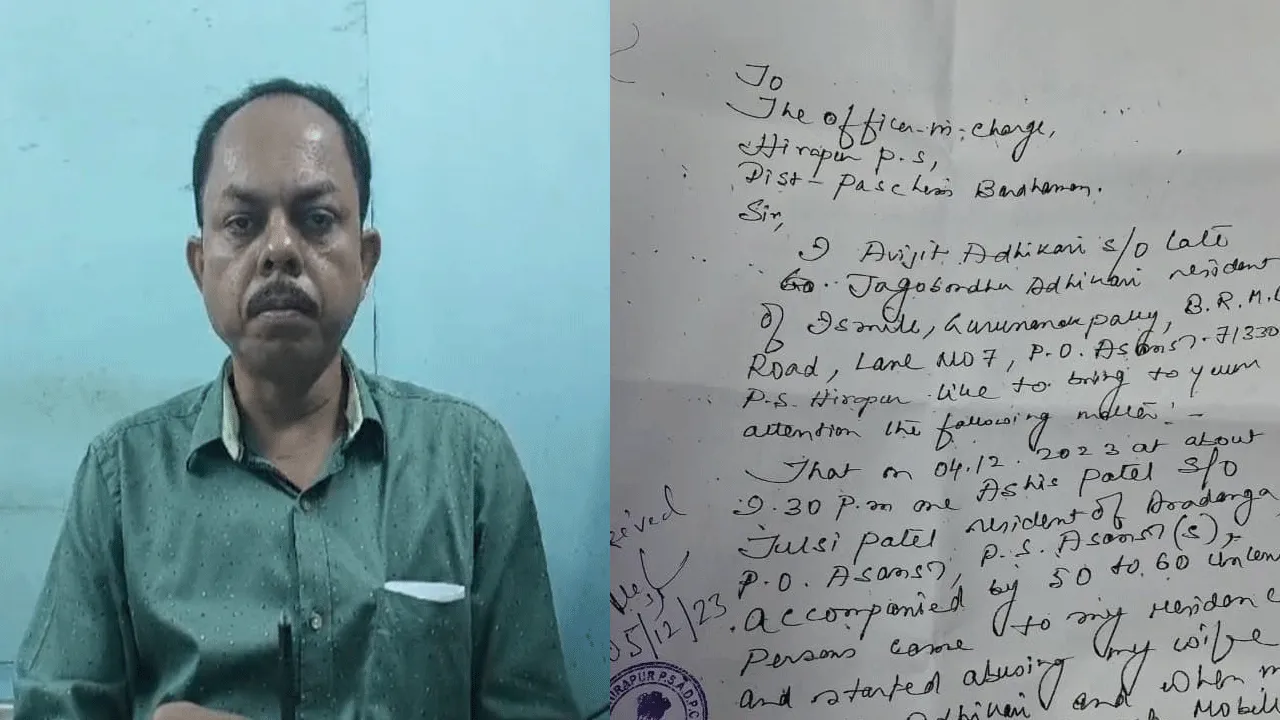 To
The Officer-in-charge,
Hirapur P.S,
Dist- Paschim Bardhaman.
Sir,
I Avijit Adhikari s/o Late
Jagobondhu Adhikari resident
of Ismile, Gurunanak pally, B.R.M.
Road, Lane No 7, P.O. Asansol-71330
P.S. Hirapur like to bring to your
attention the following matter:-
That on 04.12.2023 at about
9.30 P.m one Ashis Patel S/O
Tulsi Patel resident of Aradanga
P.O. Asansol, P.S. Asansol(S),
accompanied by 50 to 60 unknown
persons came to my residence
and started abusing my wife
Adhikari and when
Mobil
05/12/23
HIRAPUR P.S.A.D.P.C